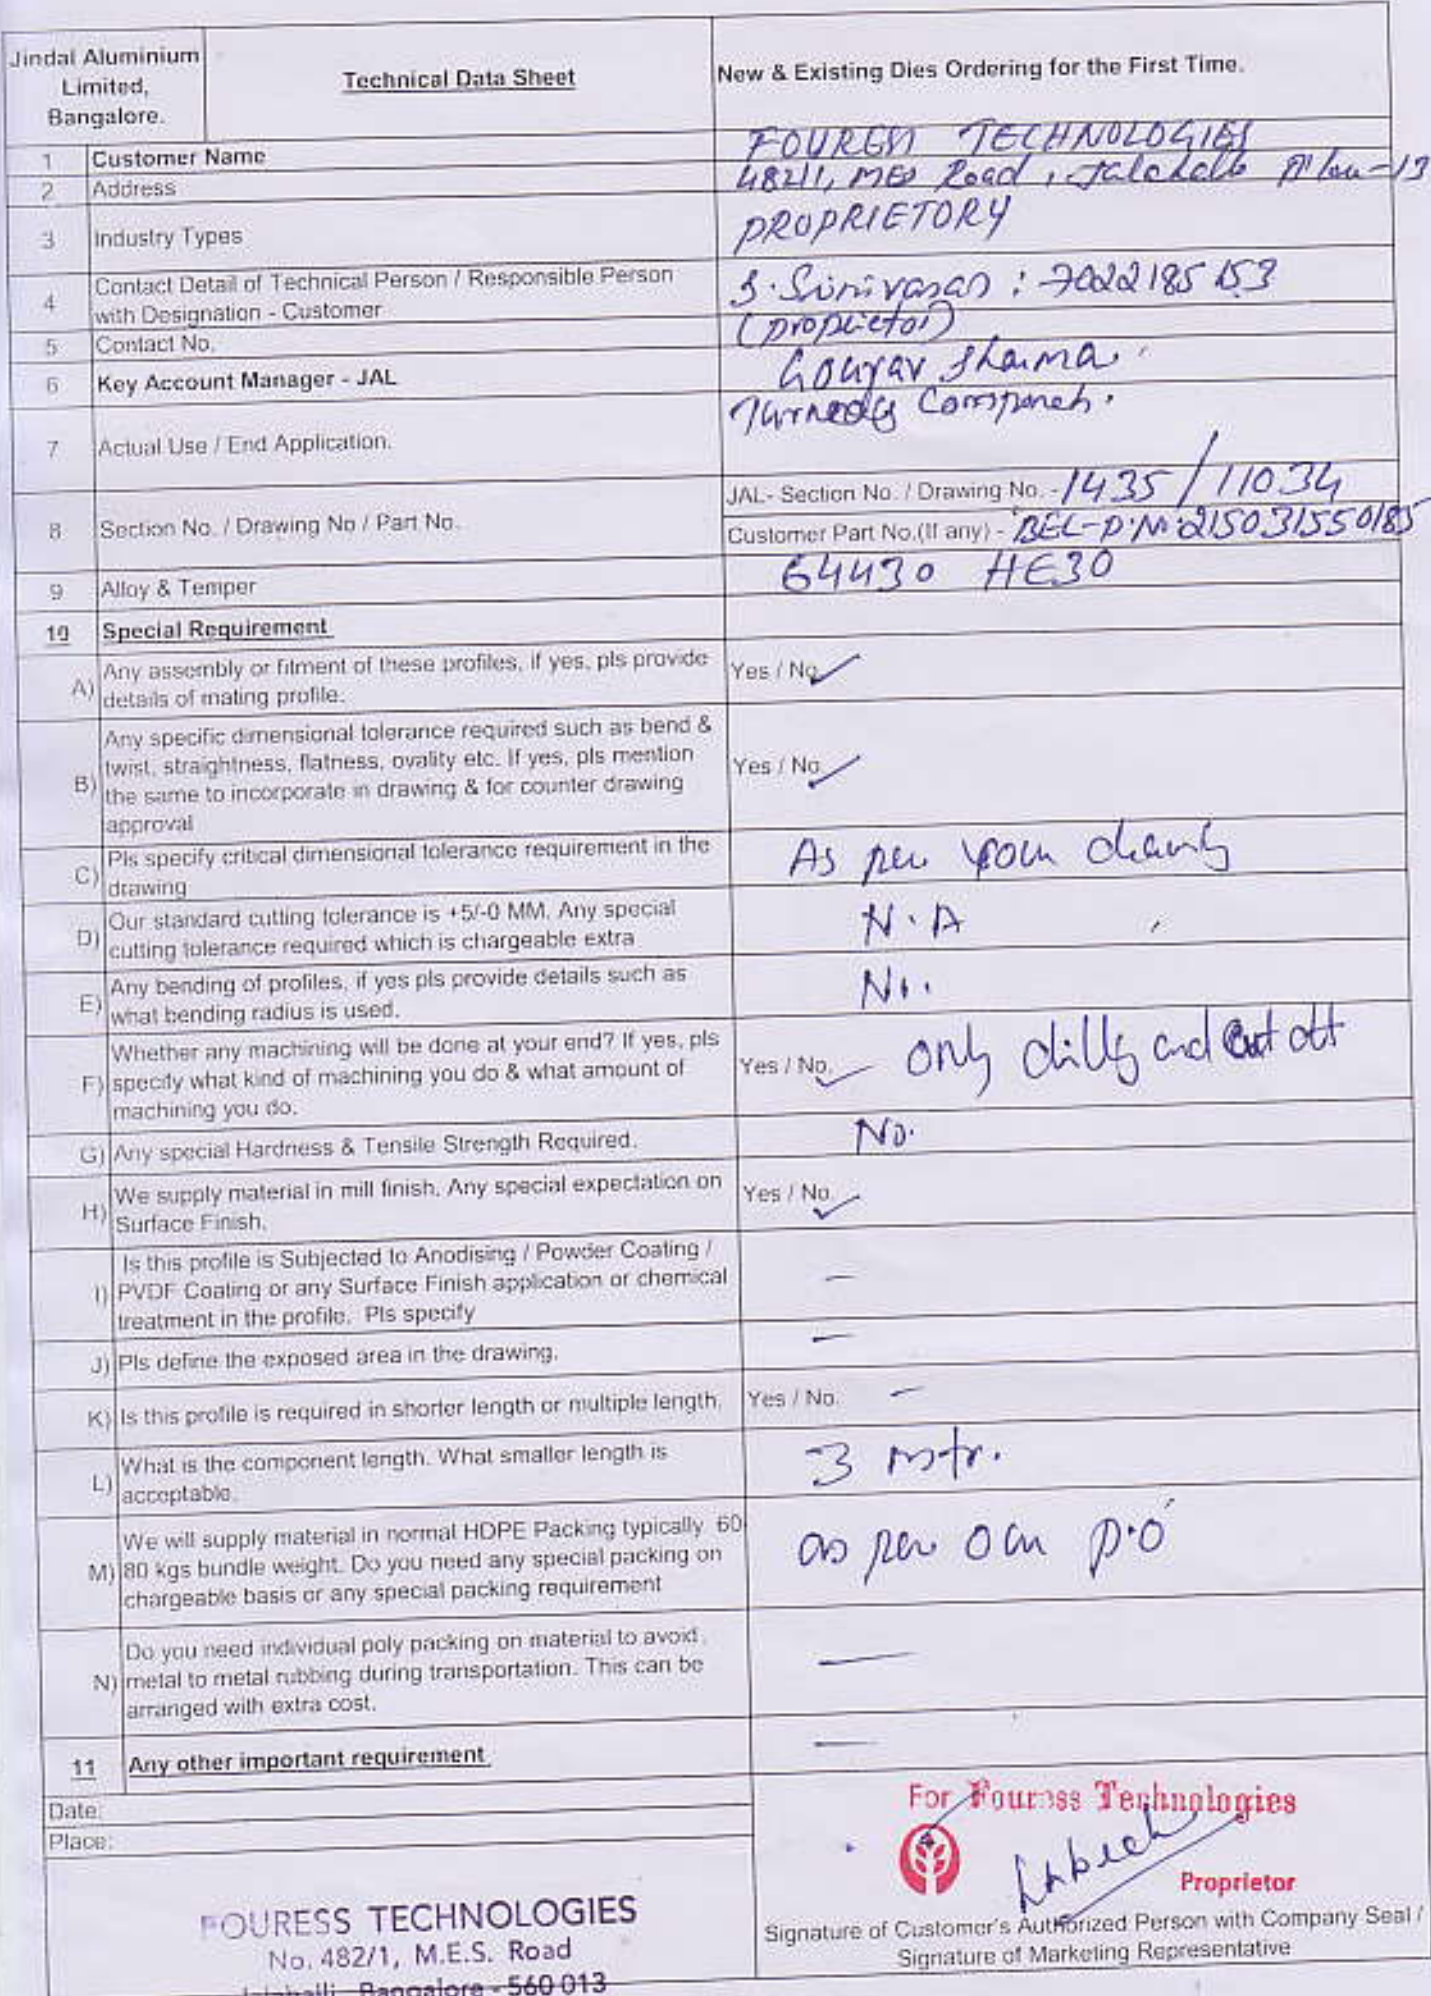 Jindal Aluminium
Limited,
Bangalore.
Technical Data Sheet
New & Existing Dies Ordering for the First Time.
1 Customer Name
FOURESS TECHNOLOGIES
2 Address
482/1, MES Road, Jalahalli B'lou-13
3 Industry Types
PROPRIETORY
4 Contact Detail of Technical Person / Responsible Person
with Designation - Customer
S. Srinivasan : 7022185153
(proprietor)
5 Contact No.
6 Key Account Manager - JAL
Gourav Sharma
7 Actual Use / End Application.
8 Section No. / Drawing No / Part No.
JAL- Section No. / Drawing No. - 1435 / 11034
Customer Part No.(If any) - BEL-P.N: 215031550185
9 Alloy & Temper
64430 HE30
10 Special Requirement
A) Any assembly or fitment of these profiles, if yes, pls provide
details of mating profile.
Yes / No
B) Any specific dimensional tolerance required such as bend &
twist, straightness, flatness, ovality etc. If yes, pls mention
the same to incorporate in drawing & for counter drawing
approval
Yes / No
C) Pls specify critical dimensional tolerance requirement in the
drawing
As per your
D) Our standard cutting tolerance is +5/-0 MM. Any special
cutting tolerance required which is chargeable extra
N.A
E) Any bending of profiles, if yes pls provide details such as
what bending radius is used.
No.
F) Whether any machining will be done at your end? If yes, pls
specify what kind of machining you do & what amount of
machining you do.
Yes / No. only and cut off
G) Any special Hardness & Tensile Strength Required.
No.
H) We supply material in mill finish. Any special expectation on
Surface Finish.
Yes / No
I) Is this profile is Subjected to Anodising / Powder Coating /
PVDF Coating or any Surface Finish application or chemical
treatment in the profile. Pls specify
-
J) Pls define the exposed area in the drawing.
-
K) Is this profile is required in shorter length or multiple length.
Yes / No. -
L) What is the component length. What smaller length is
acceptable.
3 mtr.
M) We will supply material in normal HDPE Packing typically 60
80 kgs bundle weight. Do you need any special packing on
chargeable basis or any special packing requirement
as per our p.o
N) Do you need individual poly packing on material to avoid
metal to metal rubbing during transportation. This can be
arranged with extra cost.
-
11 Any other important requirement
-
Date:
Place:
For Fouress Technologies
Proprietor
Signature of Customer's Authorized Person with Company Seal /
Signature of Marketing Representative
FOURESS TECHNOLOGIES
No. 482/1, M.E.S. Road
Jalahalli Bangalore - 560 013